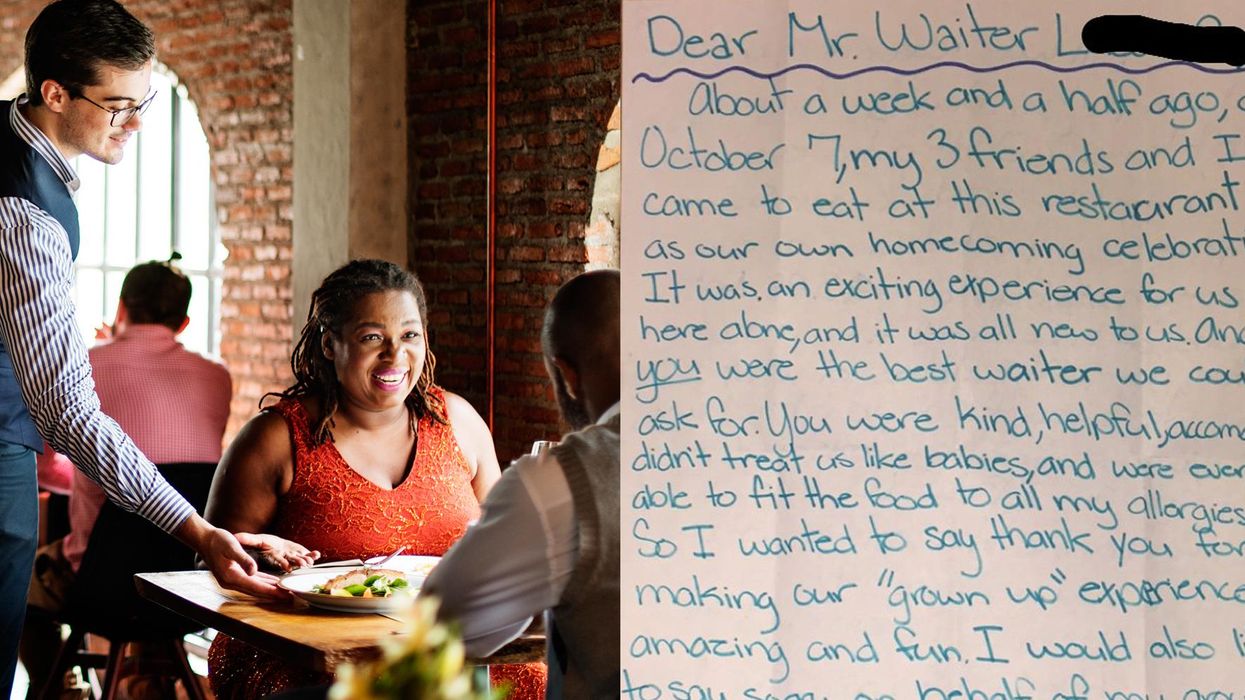 Dear Mr. Waiter
About a week and a half ago,
October 7, my 3 friends and I
came to eat at this restaurant
as our own homecoming
It was an exciting experience for us
here alone, and it was all new to us. And
you were the best waiter we
ask for. You were kind, helpful,
didn't treat us like babies, and were
able to fit the food to all my allergies
So I wanted to say thank you for
making our "grown up" experience
amazing and fun. I would also
to say